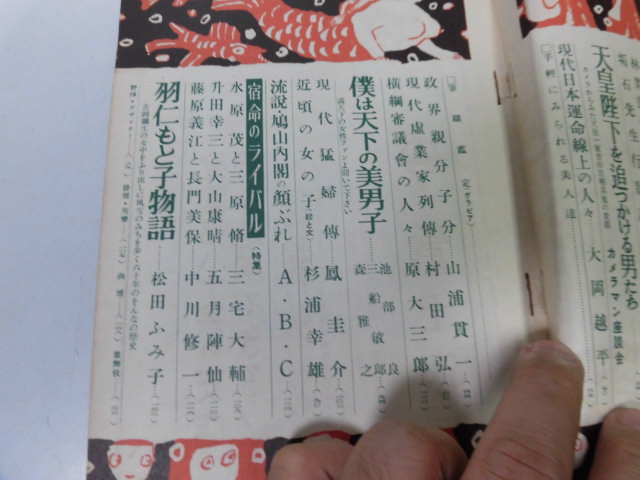 天皇陛下を追つかける男たち
カメラマン座談会
現代日本運命線上の人々 大岡越平
手軽にみられる美人達
政界親分子分 山浦貫一
現代虚業家列傳 村田弘
横綱審議會の人々 原大三郎
僕は天下の美男子
満天下の女性ファンよ聞いて下さい
池部良
三船敏郎
森雅之
現代猛婦傳 鳳圭介
近頃の女の子(絵と文) 杉浦幸雄
流説・鳩山内閣の顔ぶれ A・B・C
宿命のライバル(特集)
水原茂と三原脩 三宅大輔
升田幸三と大山康晴 五月陣仙
藤原義江と長門美保 中川修一
羽仁もと子物語 松田ふみ子